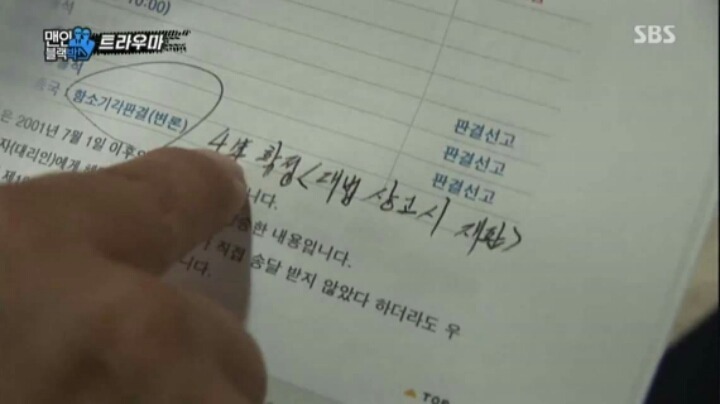 10:00)
맨인블랙박스 트라우마
SBS
항소기각판결(변론)
판결선고
판결선고
판결선고
은 2001년 7월 1일 이후
자(대리인)에게
4年 확정<대법 상고시 재판>
니다.
한 내용입니다.
직접 송달 받지 않았다 하더라도 우
니다.